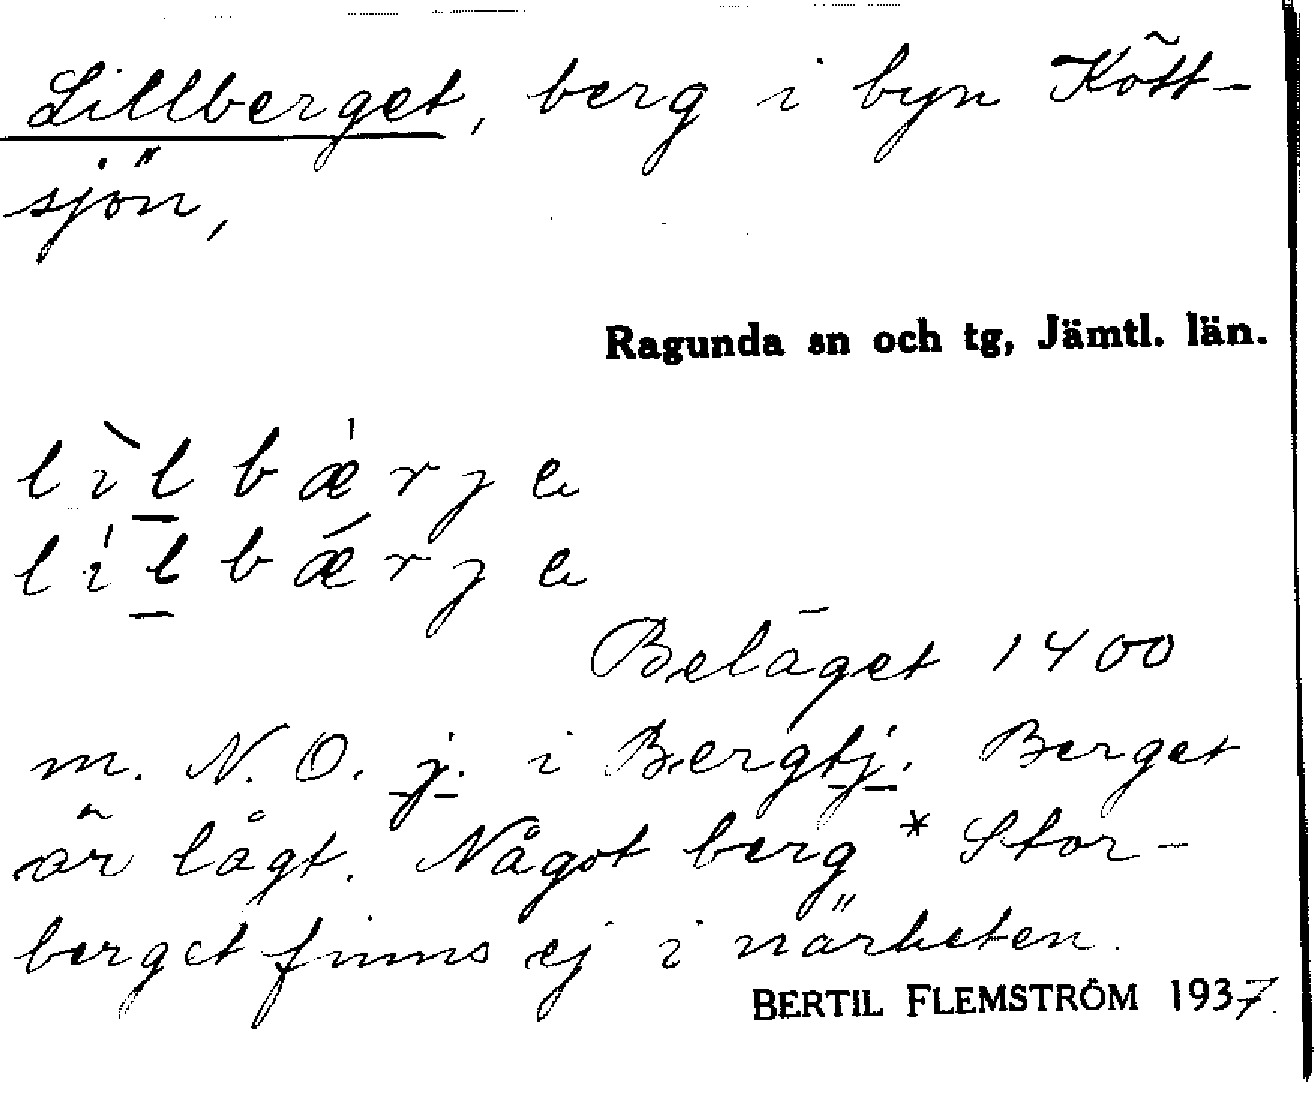 Lillberget, berg i byn Kött-
sjön,
Ragunda sn och tg, Jämtl. län.
lìlbæ̍rje
li̍lbǽrje
Beläget 1400
m. N.O. j. i Bergtj. Berget
är lågt. Något berg * Stor-
berget finns ej i närheten.
BERTIL FLEMSTRÖM 1937.